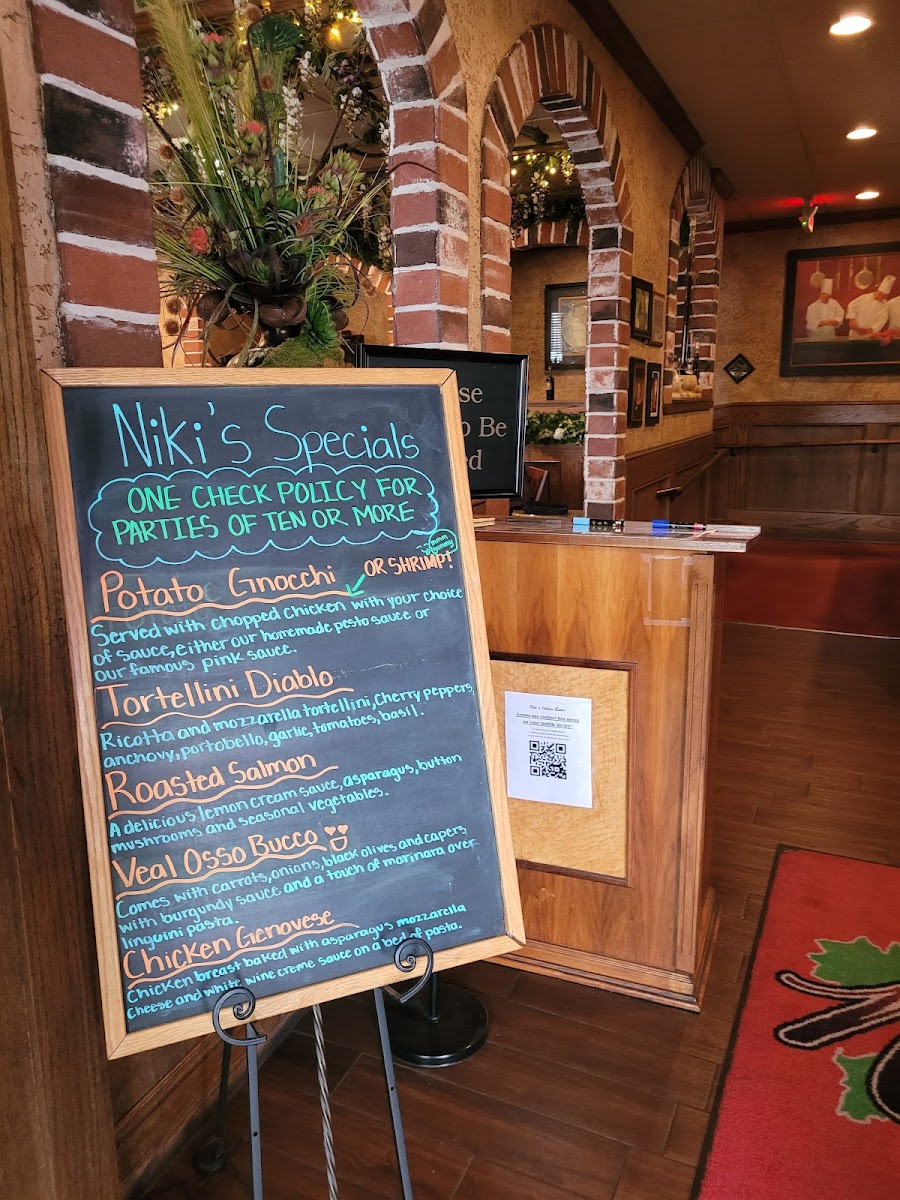 Niki's Specials
ONE CHECK POLICY FOR
PARTIES OF TEN OR MORE
mmm
yummy
Potato Gnocchi OR SHRIMP!
Served with chopped chicken with your choice
of sauce, either our homemade pesto sauce or
our famous pink sauce.
Tortellini Diablo
Ricotta and mozzarella tortellini, cherry peppers,
anchovy, portobello, garlic, tomatoes, basil.
Roasted Salmon
A delicious lemon cream sauce, asparagus, button
mushrooms and seasonal vegetables.
Veal Osso Bucco
Comes with carrots, onions, black olives and capers
with burgundy sauce and a touch of marinara over
linguini pasta.
Chicken Genovese
Chicken breast baked with asparagus mozzarella
cheese and white wine creme sauce on a bed of pasta.
se
o Be
ed
Access our contact-less menu
on your mobile device!